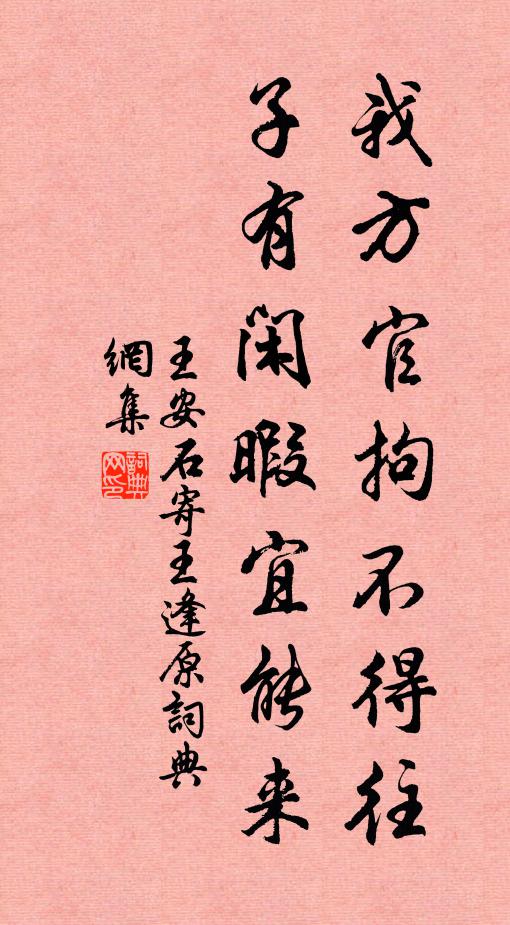 我方官拘不得往
子有閑暇宜能来
王安石寄王逢原詞典
網集
詞典网印